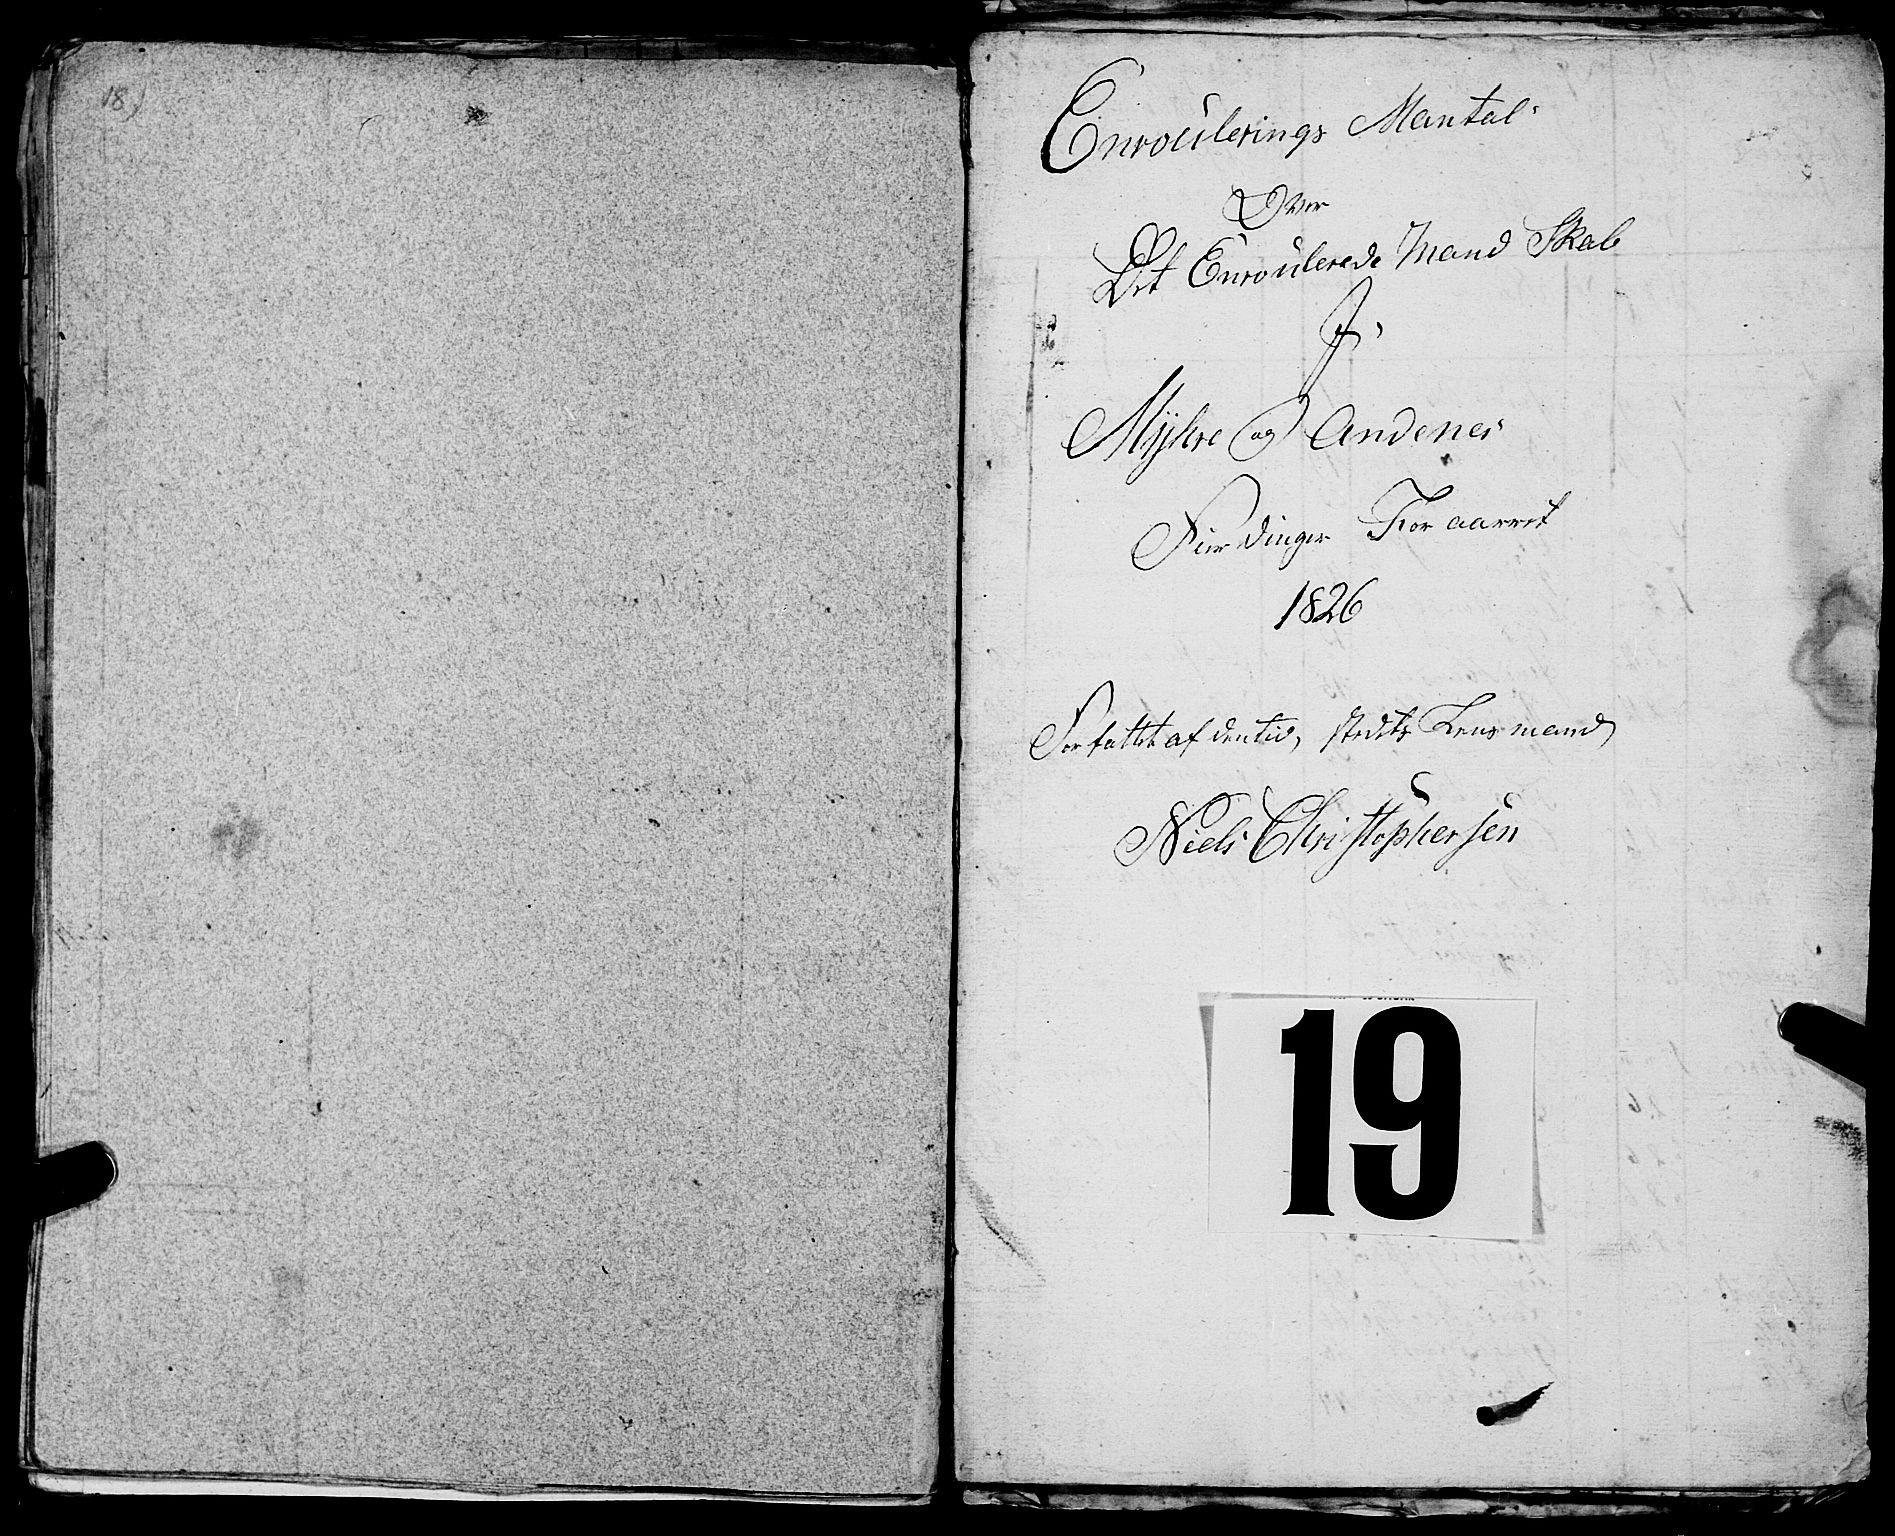 18)
Enroulerings Mantal
Over
Det Enroulerede Mand Skab
I
Mykre og Andenes
Fierdinger For aarret
1826
Forfattet af dentid, stedets Lensmand
Niels Christophersen
19